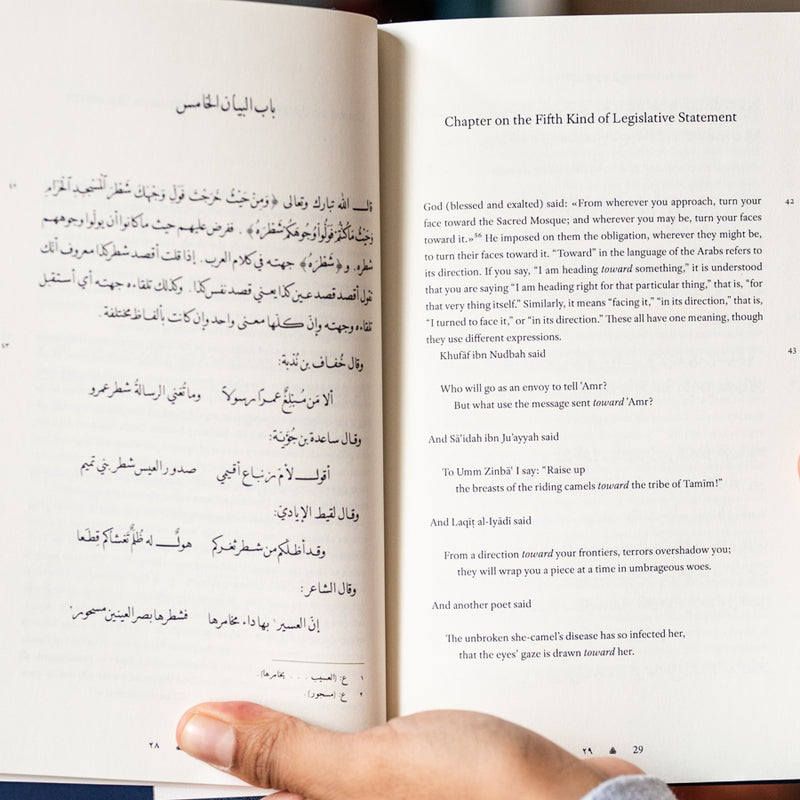 باب البيان الخامس
٤٢
قال الله تبارك وتعالى ﴿وَمِنْ حَيْثُ خَرَجْتَ فَوَلِّ وَجْهَكَ شَطْرَ ٱلْمَسْجِدِ ٱلْحَرَامِ
وَحَيْثُ مَا كُنتُمْ فَوَلُّوا۟ وُجُوهَكُمْ شَطْرَهُ﴾. ففرض عليهم حيث ما كانوا أن يولّوا وجوههم
شطره. و﴿شَطْرَهُ﴾ جهته في كلام العرب. إذا قلت أقصد شطر كذا معروف أنك
تقول أقصد قصد عين كذا يعني قصد نفس كذا. وكذلك تلقاءه جهته أي أستقبل
تلقاءه وجهته وإنّ كلها معنى واحد وإن كانت بألفاظ مختلفة.
٤٣
وقال خُفاف بن نُدْبة:
ألا مَن مُبْلِغٌ عَمرًا رسولاً وما تُغني الرسالةُ شطر عمرو
وقال ساعدة بن جُؤيّة:
أقول لأمّ زنباع أقيمي صدور العيس شطر بني تميم
وقال لقيط الإياديّ:
وقد أظلّكم من شطر ثغركم هولٌ له ظُلَمٌ تغشاكم قِطَعا
وقال الشاعر:
إنّ العسير١ بها داء مخامرها فشطرها بصر العينين مسحور٢
١ ع: (العسيب . . . يخامرها).
٢ ع: (مسجور).
٢٨
Chapter on the Fifth Kind of Legislative Statement
God (blessed and exalted) said: «From wherever you approach, turn your 42
face toward the Sacred Mosque; and wherever you may be, turn your faces
toward it.»⁵⁶ He imposed on them the obligation, wherever they might be,
to turn their faces toward it. “Toward” in the language of the Arabs refers to
its direction. If you say, “I am heading toward something,” it is understood
that you are saying “I am heading right for that particular thing,” that is, “for
that very thing itself.” Similarly, it means “facing it,” “in its direction,” that is,
“I turned to face it,” or “in its direction.” These all have one meaning, though
they use different expressions.
Khufāf ibn Nudbah said 43
Who will go as an envoy to tell ʿAmr?
But what use the message sent toward ʿAmr?
And Sāʿidah ibn Juʾayyah said
To Umm Zinbāʿ I say: “Raise up
the breasts of the riding camels toward the tribe of Tamīm!”
And Laqīṭ al-Iyādī said
From a direction toward your frontiers, terrors overshadow you;
they will wrap you a piece at a time in umbrageous woes.
And another poet said
The unbroken she-camel’s disease has so infected her,
that the eyes’ gaze is drawn toward her.
٢٩ 29